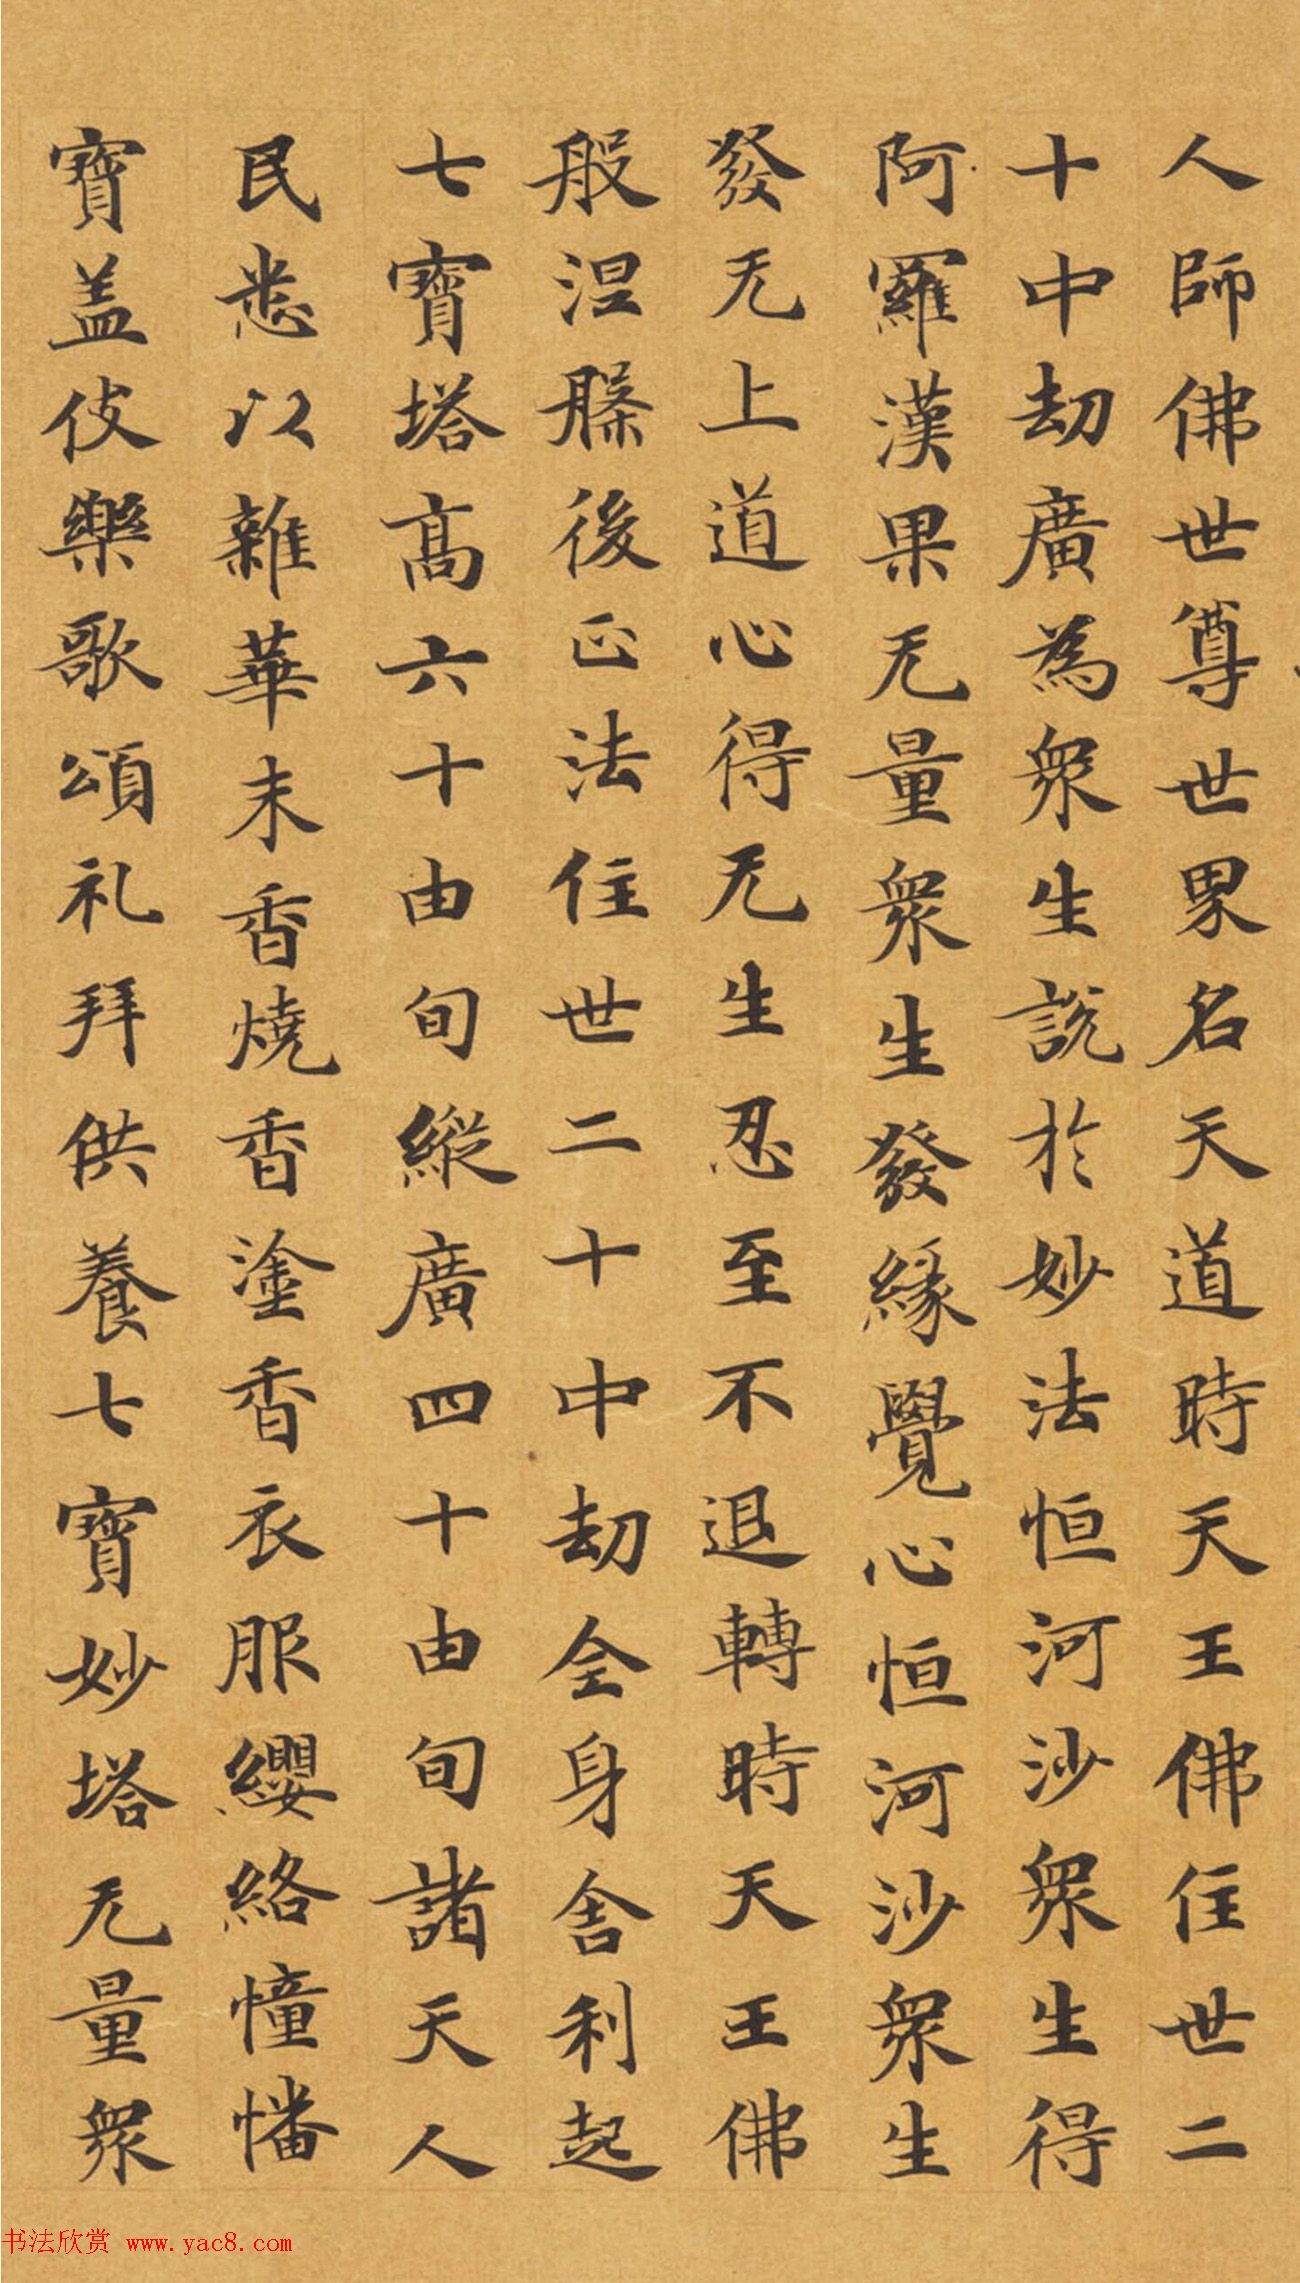 人師佛世尊世界名天道時天王佛住世二
十中劫廣為眾生說於妙法恒河沙眾生得
阿羅漢果无量眾生發緣覺心恒河沙眾生
發无上道心得无生忍至不退轉時天王佛
般涅槃後正法住世二十中劫全身舍利起
七寶塔高六十由旬縱廣四十由旬諸天人
民悉以雜華末香燒香塗香衣服纓絡憧幡
寶盖伎樂歌頌礼拜供養七寶妙塔无量眾
书法欣赏 www.yac8.com